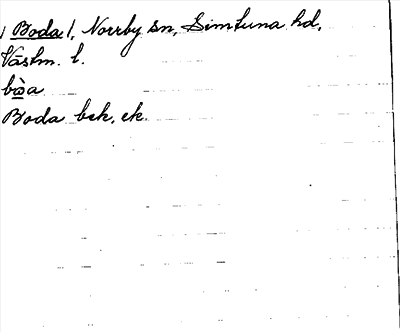 1 Boda /, Norrby sn, Simtuna hd,
Västm. l.
bòa
Boda bsk. ek.